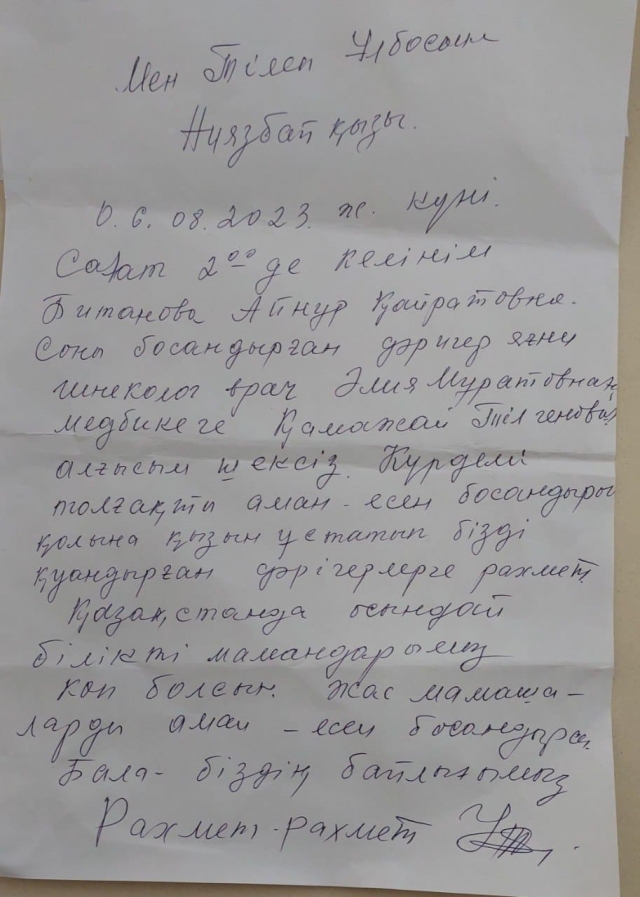 Мен Тілеп Ұлбосын
Ниязбай қызы.
0.6.08.2023. ж. күні.
Сағат 2⁰⁰ де келінім
Битанова Айнур Қайратовна.
Соны босандырған дәригер яғни
гинеколог врач Әлия Муратовнаң
медбикеге Қамажай
алғысым шексіз. Күрделі
толғақты аман-есен босандырып
қолына қызын ұстатып бізді
қуандырған дәрігерлерге рахмет.
Қазақстанда осындай
білікті мамандарымыз
коп болсын. Жас мамаша-
ларды аман-есен босандырсын
Бала-біздің байлығымыз
Рахмет-рахмет